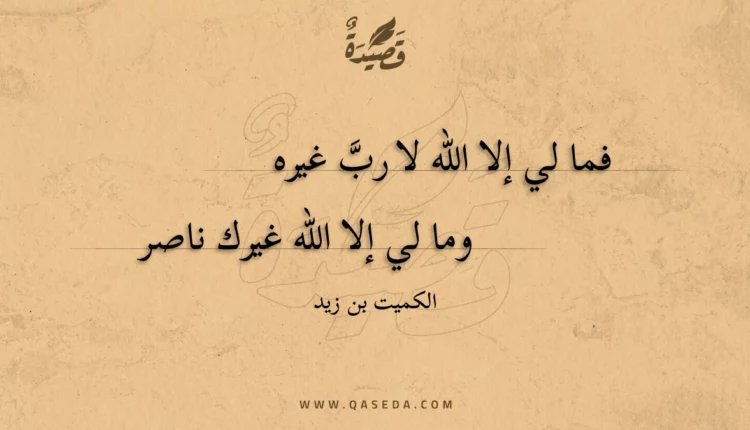 قَصِيْدَةٌ
فما لي إلا الله لا ربَّ غيره
وما لي إلا الله غيرك ناصر
الكميت بن زيد
WWW.QASEDA.COM